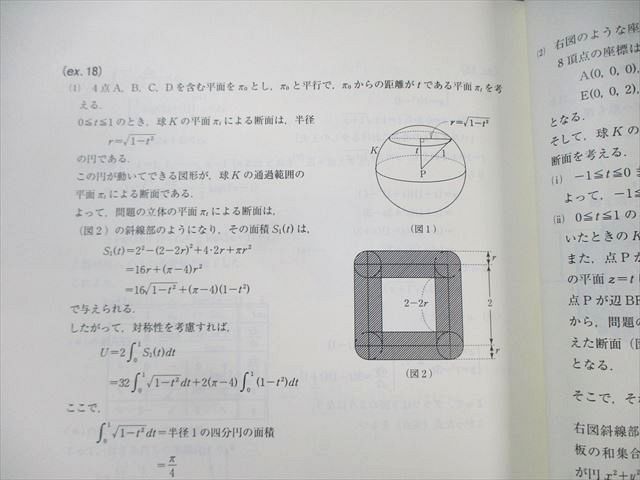 (ex.18)
(1) 4点A, B, C, Dを含む平面をπ₀とし, π₀と平行で, π₀からの距離がtである平面πₜを考
える.
0≦t≦1のとき, 球Kの平面πₜによる断面は, 半径
r=√1-t²
の円である.
この円が動いてできる図形が, 球Kの通過範囲の
平面πₜによる断面である.
よって, 問題の立体の平面πₜによる断面は,
(図2)の斜線部のようになり, その面積S₁(t)は,
S₁(t)=2²-(2-2r)²+4·2r+πr²
=16r+(π-4)r²
=16√1-t²+(π-4)(1-t²)
で与えられる.
したがって, 対称性を考慮すれば,
U=2∫₀¹S₁(t)dt
=32∫₀¹√1-t²dt+2(π-4)∫₀¹(1-t²)dt
ここで,
∫₀¹√1-t²dt=半径1の四分円の面積
=π/4
r=√1-t²
K
r
t
1
P
(図1)
r
2-2r
2
r
(図2)
(2) 右図のような座
8頂点の座標は
A(0, 0, 0),
E(0, 0, 2),
となる.
そして, 球Kの
断面を考える.
(i) -1≦t≦0
よって, -1≦
(ii) 0≦t≦1の
いたときのK
また, 点Pが
の平面z=t
点Pが辺BF
から, 問題の
えた断面(図
となる.
そこで, それ
右図斜線部
板の和集合
が円x²+y²